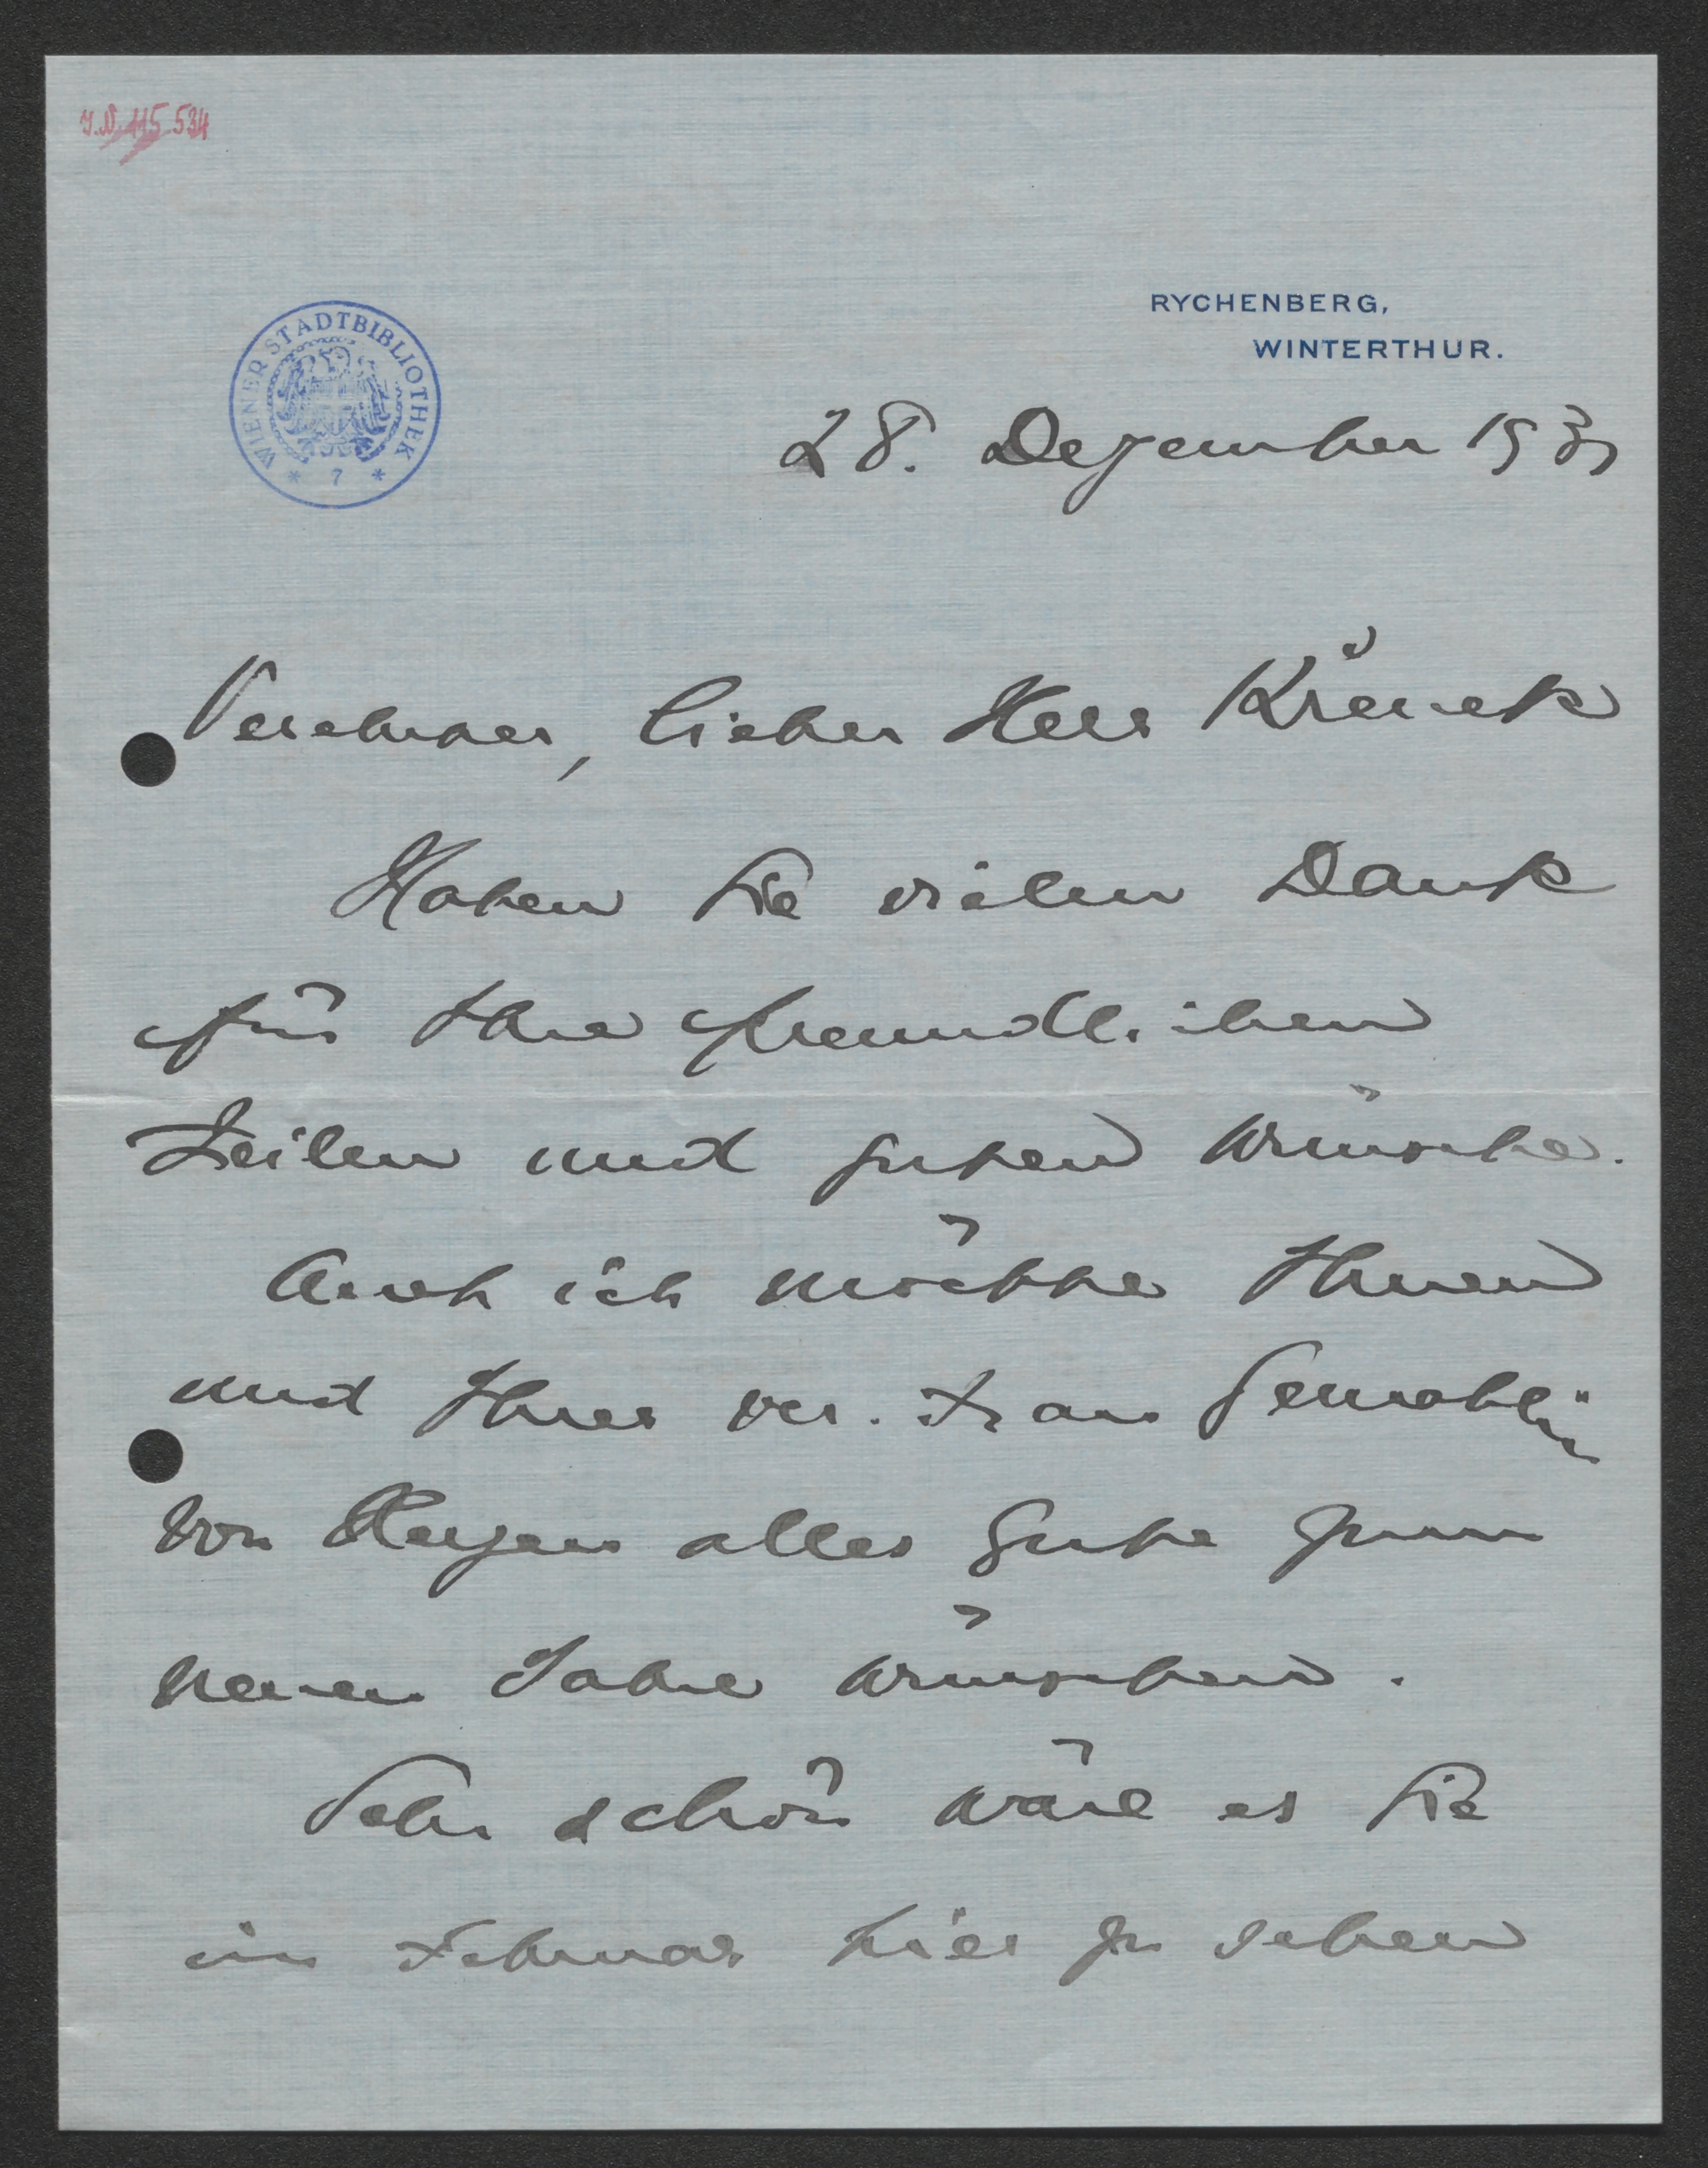 I.N. 115.534
RYCHENBERG,
WINTERTHUR.
WIENER STADTBIBLIOTHEK
* 7 *
28. Dezember 193
Verehrter, lieber Herr Křenek
Haben Sie vielen Dank
für Ihre freundlichen
Zeilen und guten Wünsche.
Auch ich möchte Ihnen
und Ihrer ver. Frau Gemahlin
von Herzen alles Gute zum
neuen Jahre wünschen.
Sehr schön wäre es Sie
im Februar hier zu sehen